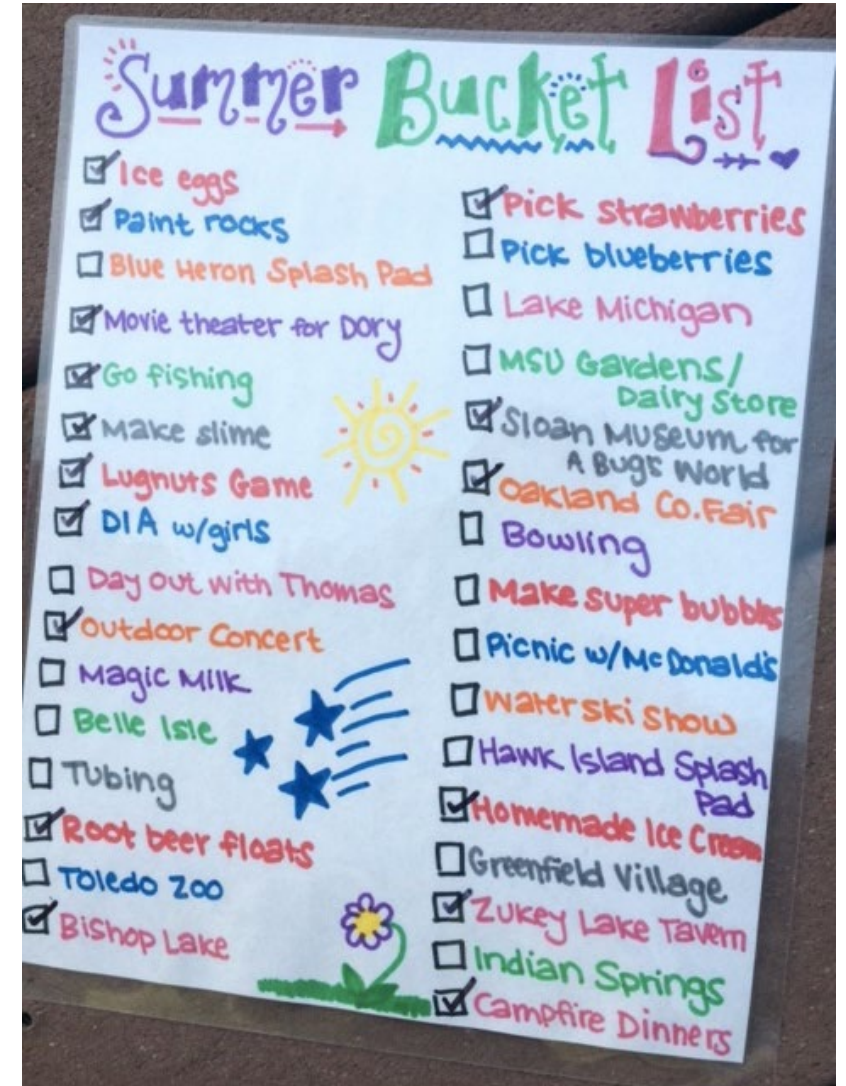 Summer Bucket List
Ice eggs
Paint rocks
Blue Heron Splash Pad
Movie theater for Dory
Go fishing
Make slime
Lugnuts Game
DIA w/girls
Day out with Thomas
Outdoor Concert
Magic Milk
Belle Isle
Tubing
Root beer floats
Toledo Zoo
Bishop Lake
Pick strawberries
Pick blueberries
Lake Michigan
MSU Gardens/
Dairy Store
Sloan Museum for
A Bug's World
Oakland Co. Fair
Bowling
Make super bubbles
Picnic w/McDonald's
Water ski show
Hawk Island Splash
Pad
Homemade Ice Cream
Greenfield Village
Zukey Lake Tavern
Indian Springs
Campfire Dinners